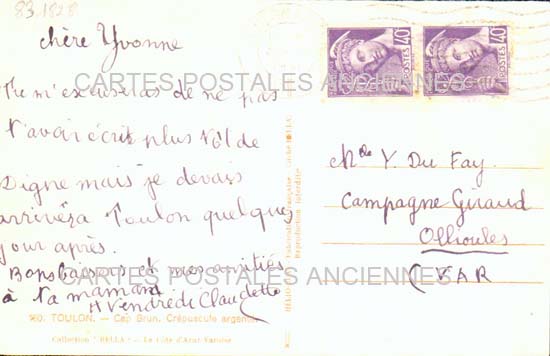 83.1828
chère Yvonne
Tu m'excuseras de ne pas
t'avoir écrit plus tôt de
Digne mais je devais
arriver à Toulon quelques
jour après.
Bons baisers et mes amitiés
à ta maman.
A Vendredi Claudette
960. TOULON. - Cap Brun. Crépuscule argenté
Collection "BELLA" - La Côte d'Azur Varoise
Reproduction interdite
40
POSTES
40
POSTES
Mlle Y. Du Fay.
Campagne Giraud
Ollioules
(VAR)
CARTES POSTALES ANCIENNES
CARTES POSTALES ANCIENNES